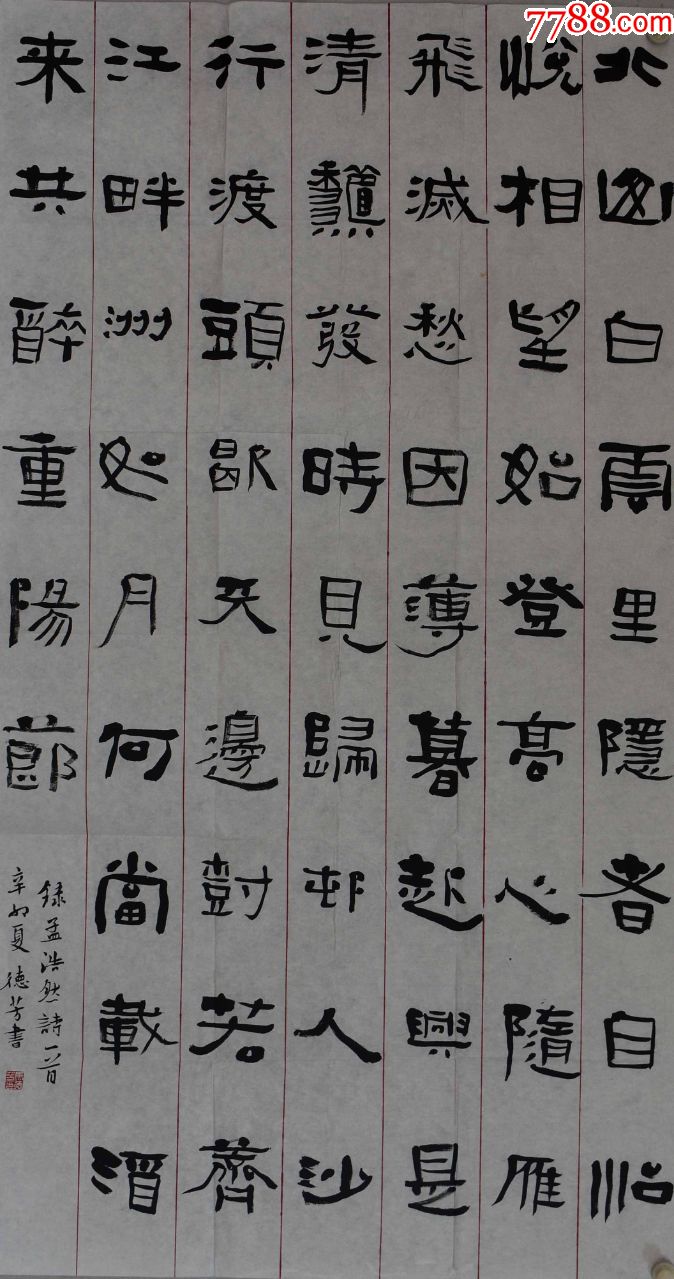 7788.com
北山白雲里隱者自怡
悅相望始登高心隨雁
飛滅愁因薄暮起興是
清龝發時見歸邨人沙
行渡頭歇天邊尌若薺
江畔洲如月何當載酒
来共醉重陽節
録孟浩然詩一首
辛卯夏 德芳書